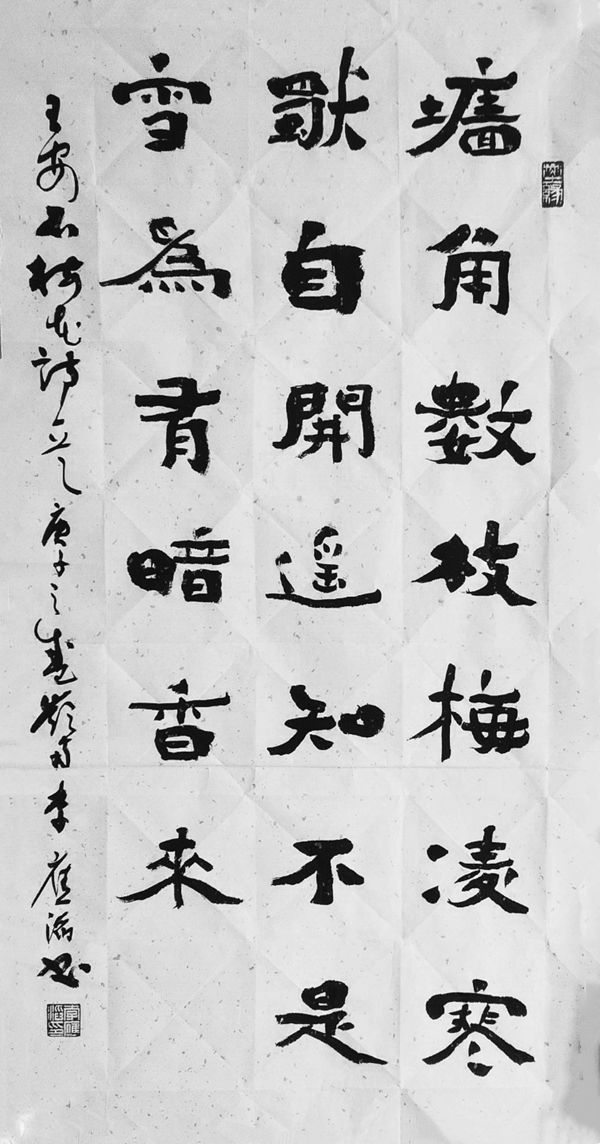 墻角數枝梅凌寒
獨自開遥知不是
雪為有暗香來
王安石梅花詩一首庚子之春嶺南李應滔書